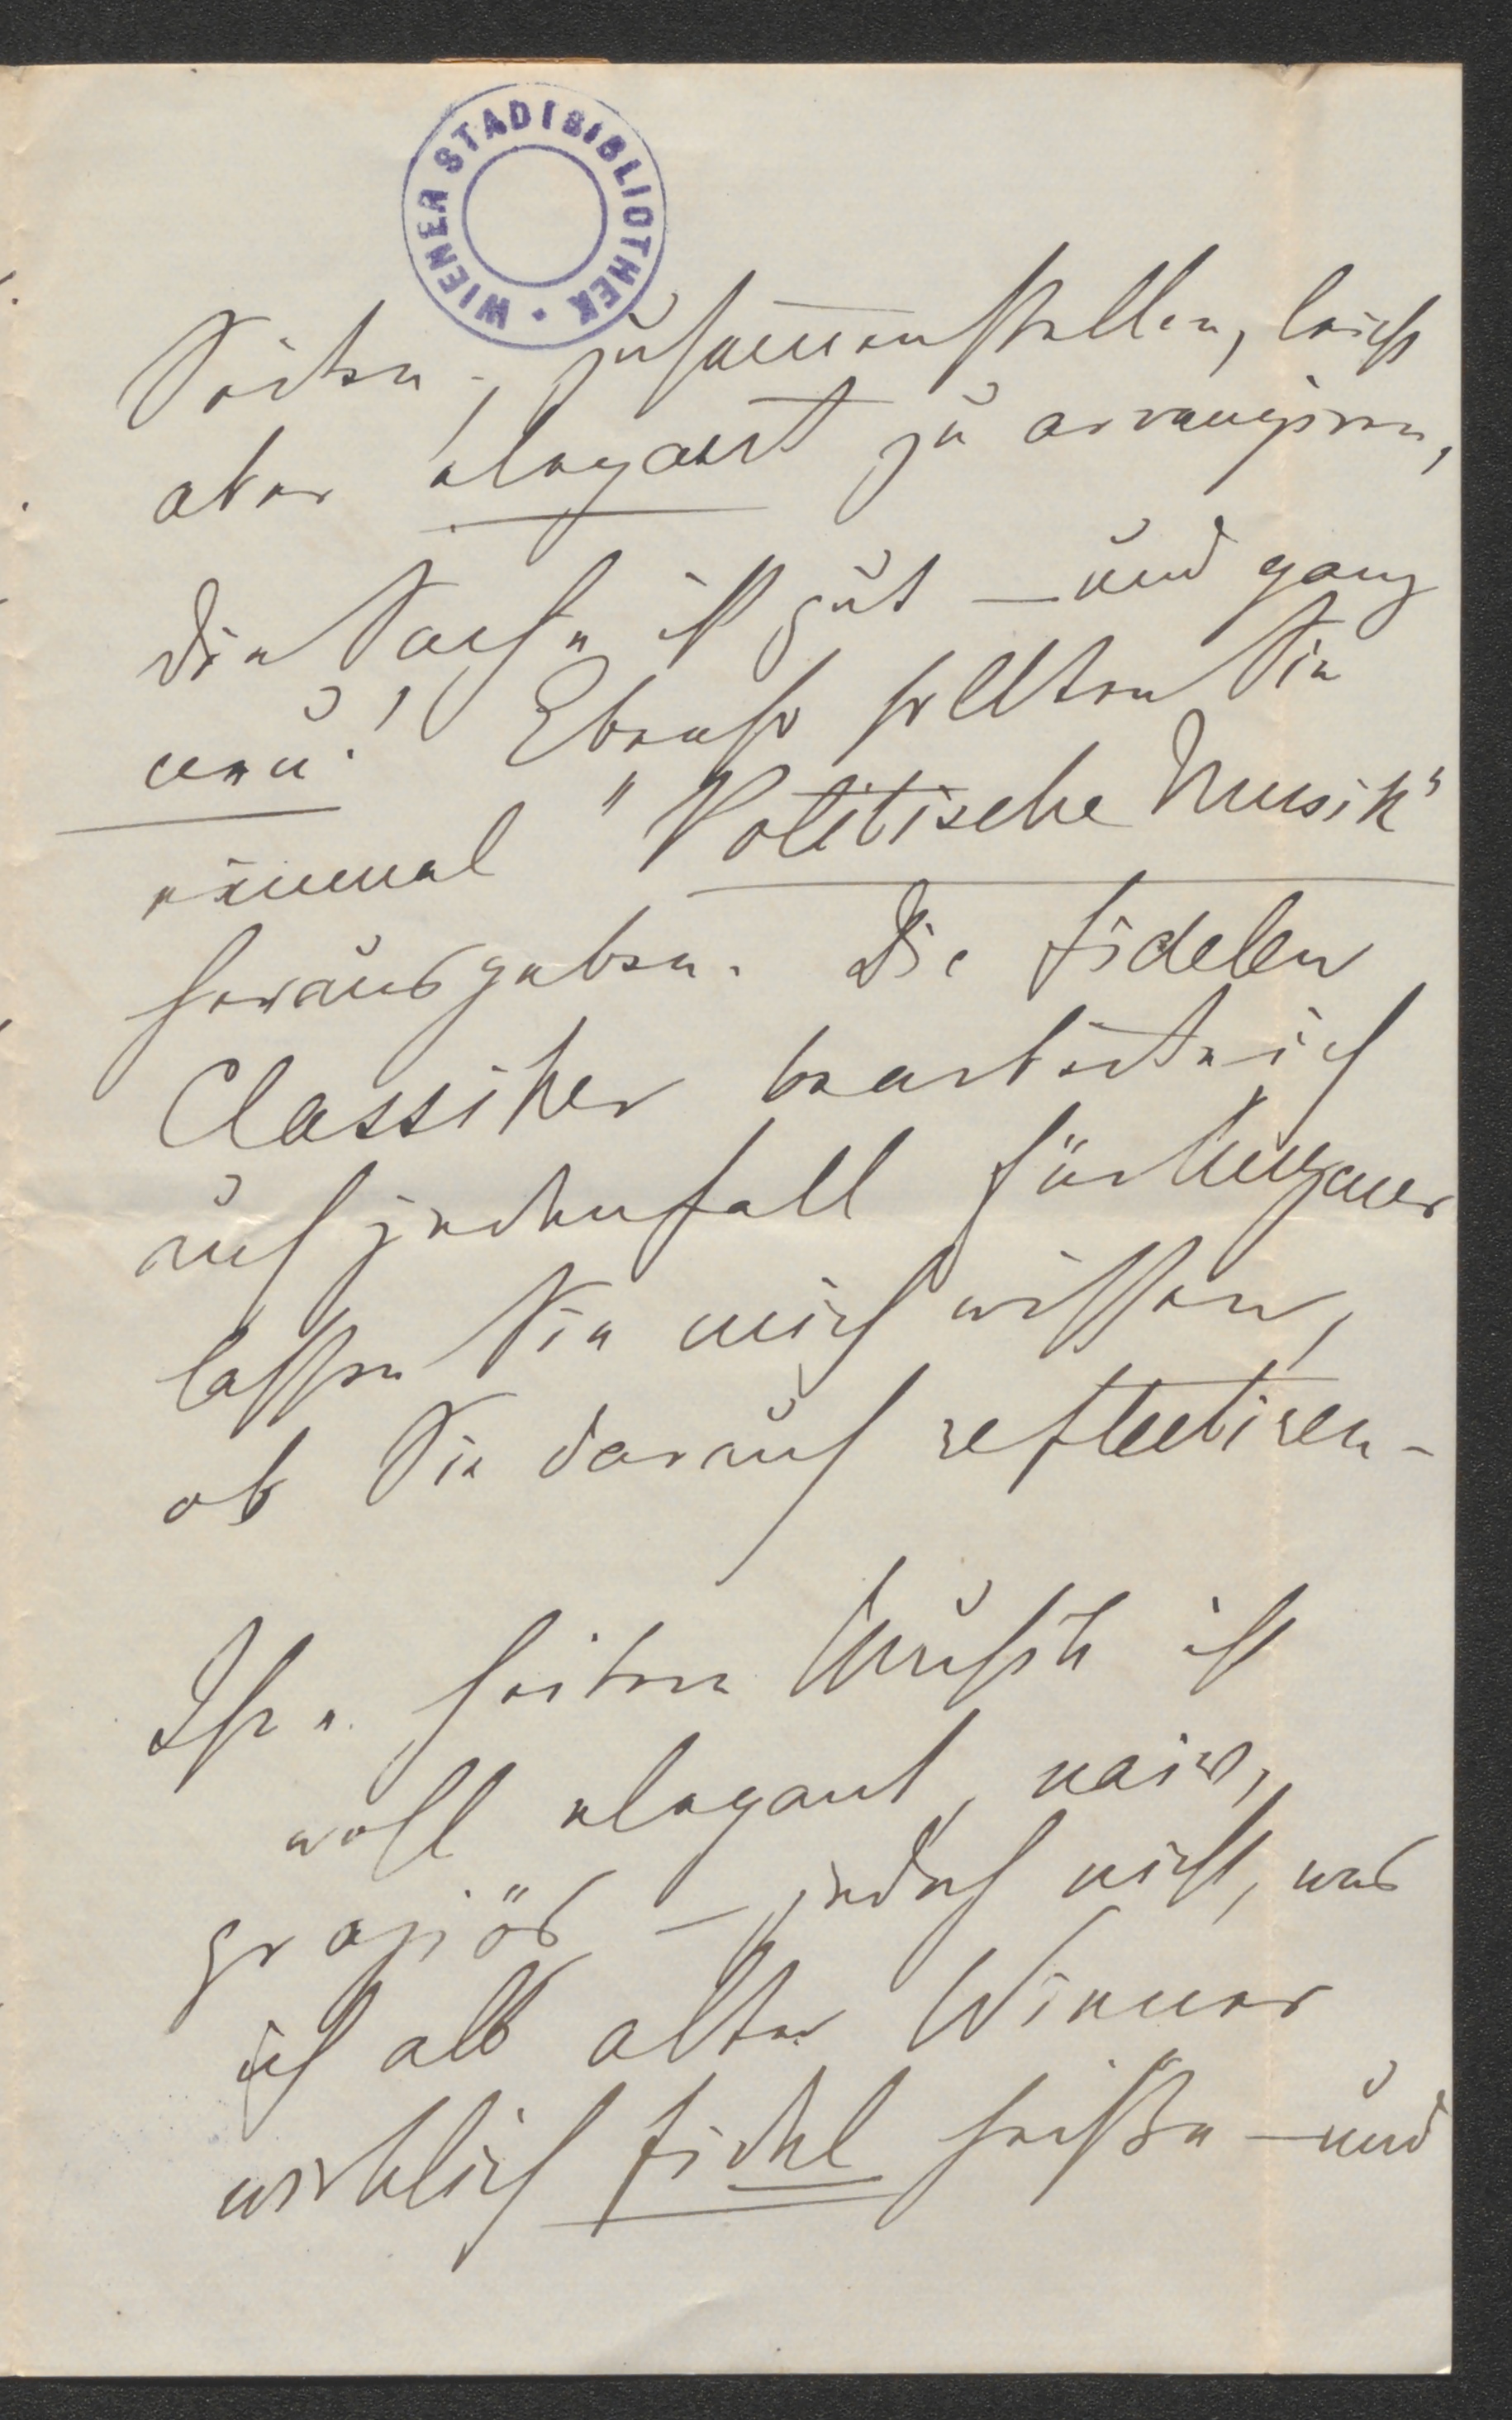 WIENER STADTBIBLIOTHEK
Seiten, zusammenstellen, leicht
aber elegant zu arrangiren,
die Sache ist gut – und ganz
neu! Ebenso sollten Sie
einmal "Politische Musik"
herausgeben. Die fidelen
Classiker bearbeite ich
auf jedenfall für
lassen Sie mich wissen,
ob Sie darauf reflectiren –
Ihre heitere Musik ist
wohl elegant, naiv,
graziös – jedoch nicht, was
ich als alter Wiener
wirklich fidel heiße – und